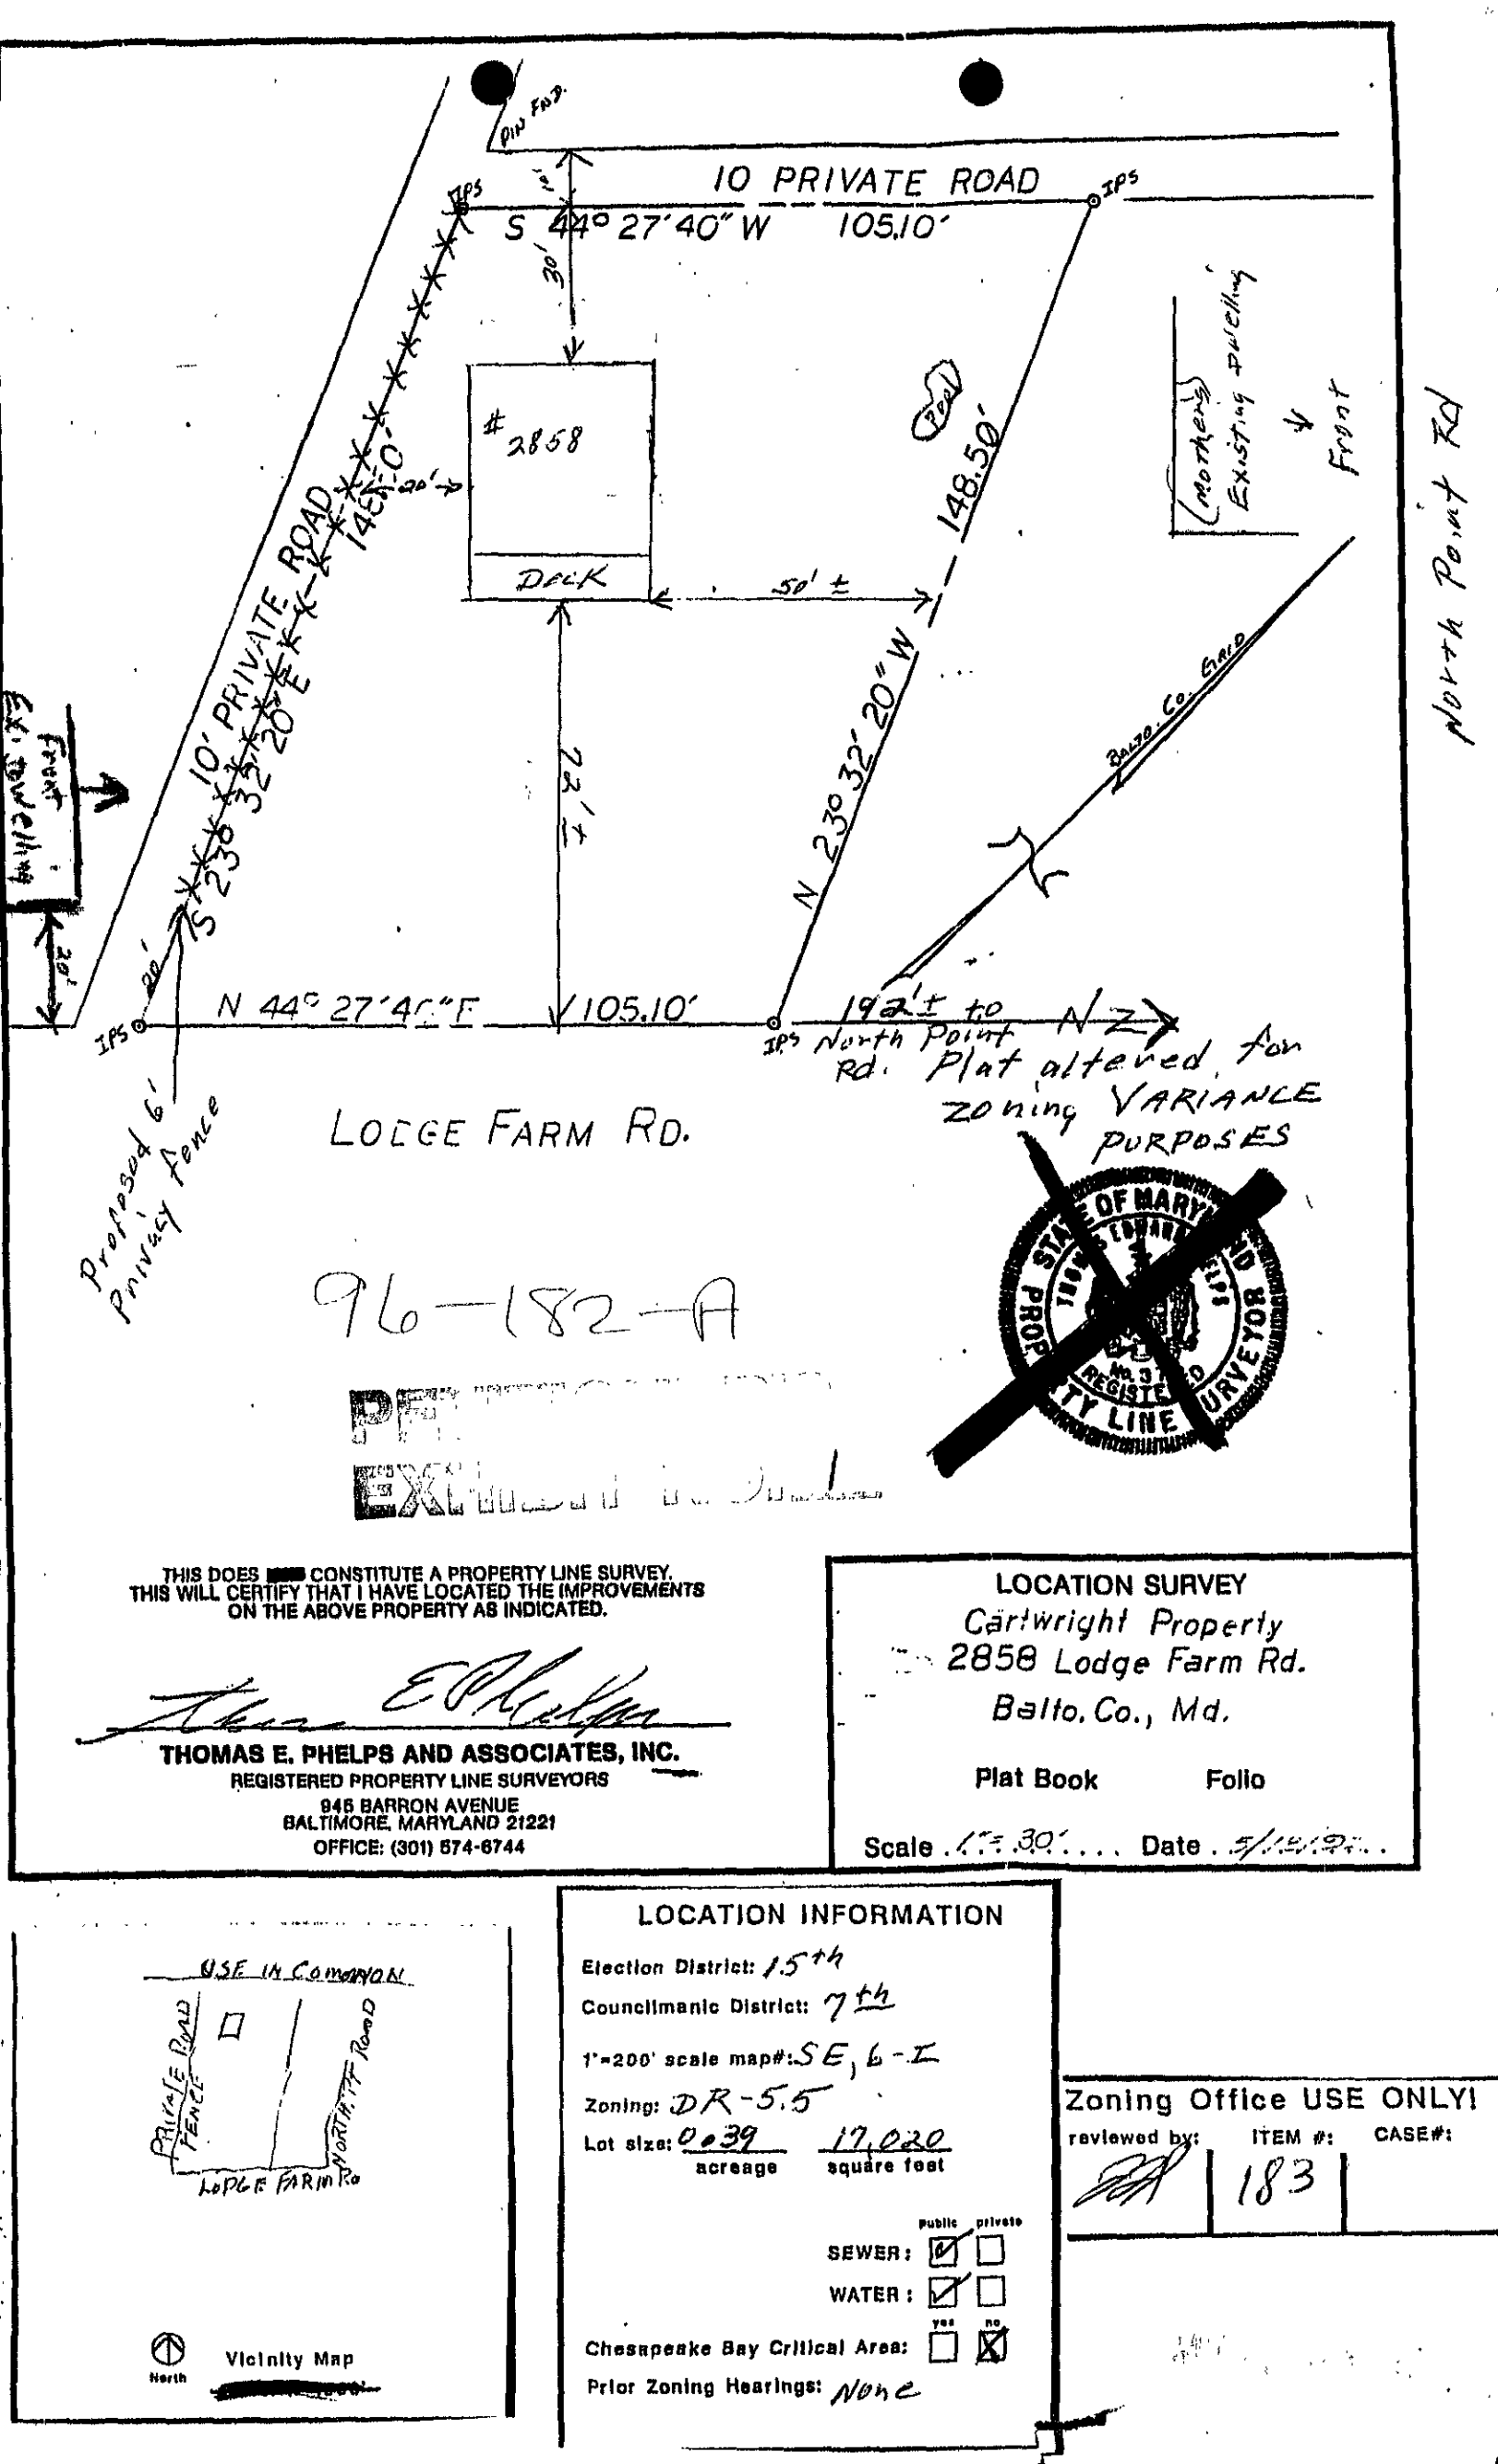 PIN FND.
10 PRIVATE ROAD
IPS
IPS
10'
S 44° 27' 40" W 105.10'
30'
# 2858
20'
Deck
50' ±
22' ±
10' PRIVATE ROAD
S 23° 32' 20" E
Pool
148.50'
N 23° 32' 20" W
(Mothers)
Existing Dwelling
Front
North Point Rd
BALTO. CO. GRID
Front
Ex. Dwelling
20'
20'
IPS
N 44° 27' 40" E 105.10'
IPS
192'± to
North Point
Rd.
Plat altered for
zoning VARIANCE
PURPOSES
Proposed 6'
Privacy fence
LODGE FARM RD.
96-182-A
STATE OF MARYLAND
REGISTERED
PROPERTY LINE SURVEYOR
THIS DOES CONSTITUTE A PROPERTY LINE SURVEY.
THIS WILL CERTIFY THAT I HAVE LOCATED THE IMPROVEMENTS
ON THE ABOVE PROPERTY AS INDICATED.
THOMAS E. PHELPS AND ASSOCIATES, INC.
REGISTERED PROPERTY LINE SURVEYORS
945 BARRON AVENUE
BALTIMORE, MARYLAND 21221
OFFICE: (301) 574-6744
LOCATION SURVEY
Cartwright Property
2858 Lodge Farm Rd.
Balto. Co., Md.
Plat Book Folio
Scale 1"= 30' Date
USE IN COMMON
PRIVATE ROAD
FENCE
NORTH PT ROAD
LODGE FARM RD
North
Vicinity Map
LOCATION INFORMATION
Election District: 15th
Councilmanic District: 7th
1"=200' scale map#: SE, 6-I
Zoning: DR-5.5
Lot size: 0.39 17,020
acreage square feet
public private
SEWER:
WATER:
yes no
Chesapeake Bay Critical Area:
Prior Zoning Hearings: None
Zoning Office USE ONLY!
reviewed by: ITEM #: CASE#:
183